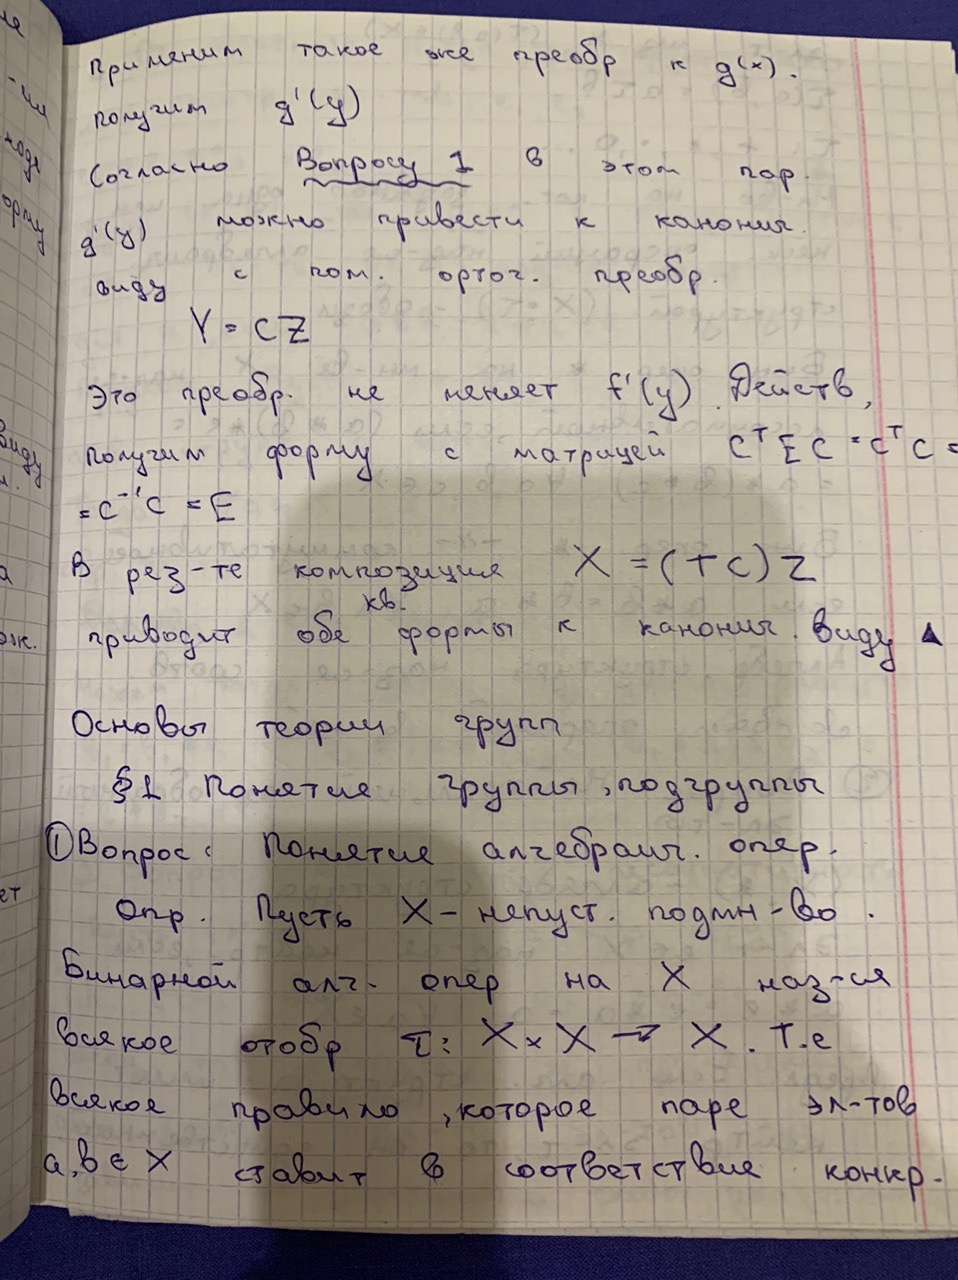 Применим такое же преобр к g(x).
получим g'(y)
Согласно Вопросу 1 в этом пар.
g'(y) можно привести к канонич.
виду с пом. ортог. преобр.
Y = CZ
Это преобр. не меняет f'(y). Действ,
получим форму с матрицей C^T E C = C^T C =
= C^-1 C = E
В рез-те композиция X = (TC) Z
кв.
приводит обе формы к канонич. виду ▲
Основы теории групп
§1 Понятие группы, подгруппы
① Вопрос: Понятие алгебраич. опер.
Опр. Пусть X - непуст. подмн-во.
Бинарной алг. опер на X наз-ся
всякое отобр τ: X × X → X. Т.е
всякое правило, которое паре эл-тов
a, b ∈ X ставит в соответствие конкр.